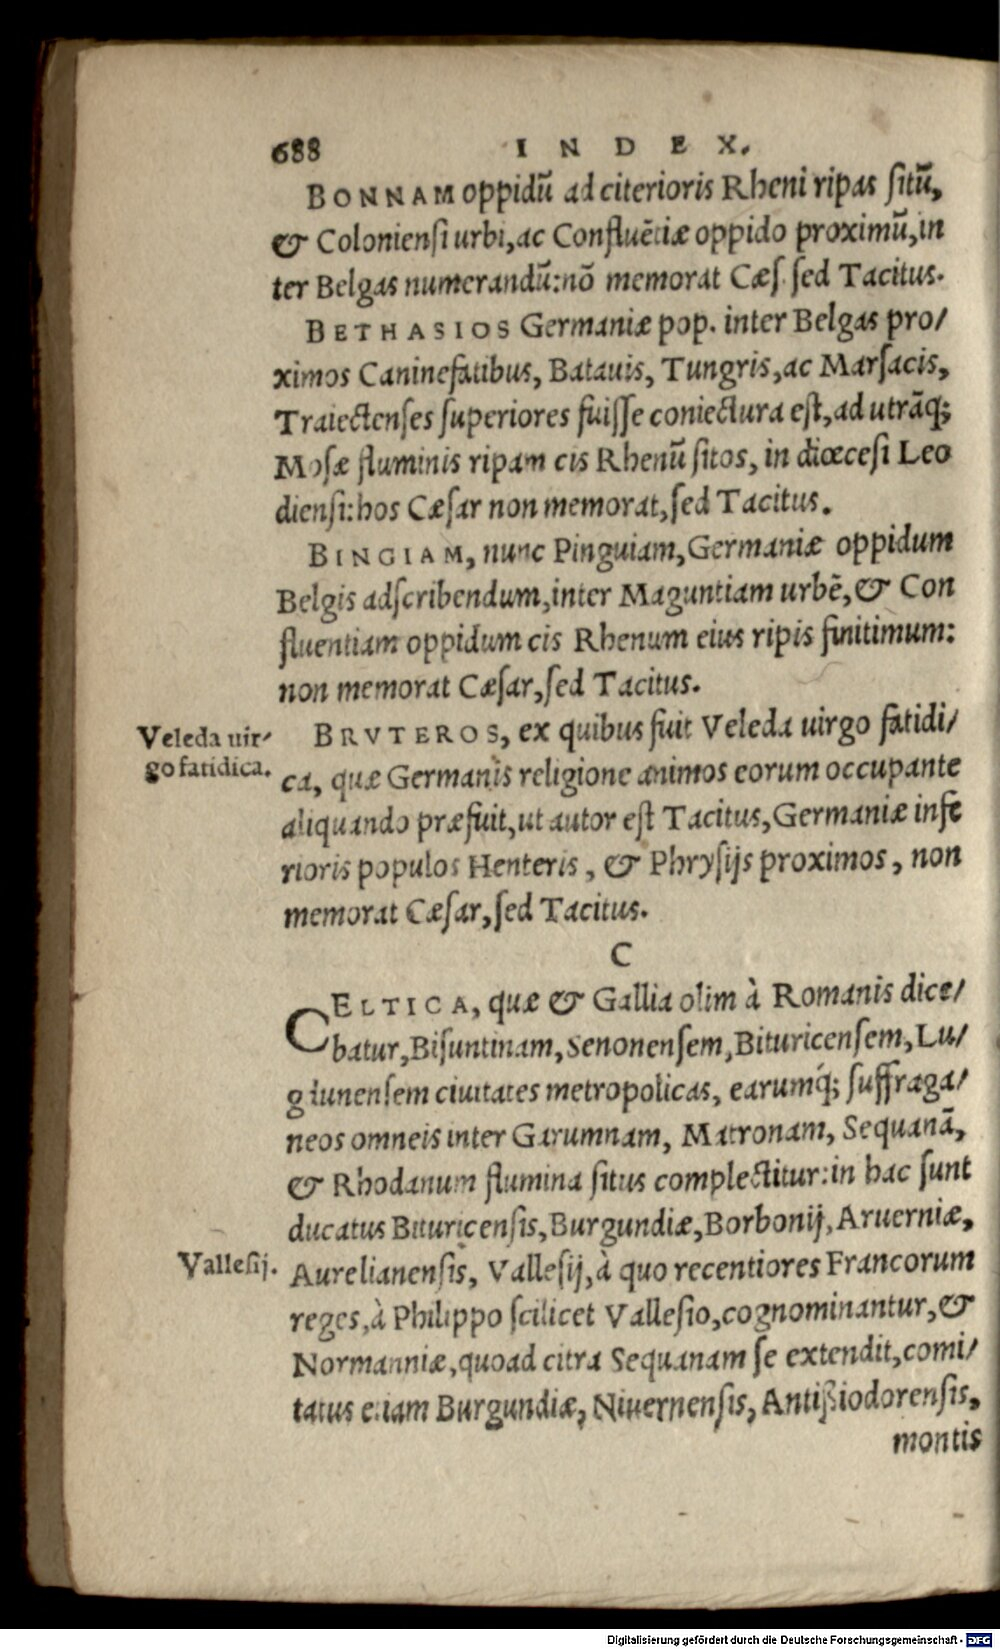 688 INDEX.
BONNAM oppidū ad citerioris Rheni ripas sitū,
& Coloniensi urbi, ac Confluētiæ oppido proximū, in
ter Belgas numerandū: nō memorat Cæs. sed Tacitus.
BETHASIOS Germaniæ pop. inter Belgas pro/
ximos Caninefatibus, Batauis, Tungris, ac Marsacis,
Traiectenses superiores fuisse coniectura est, ad utrāq;
Mosæ fluminis ripam cis Rhenū sitos, in diœcesi Leo
diensi: hos Cæsar non memorat, sed Tacitus.
BINGIAM, nunc Pinguiam, Germaniæ oppidum
Belgis adscribendum, inter Maguntiam urbē, & Con
fluentiam oppidum cis Rhenum eius ripis finitimum:
non memorat Cæsar, sed Tacitus.
Veleda uir/
go fatidica.
BRVTEROS, ex quibus fuit Veleda uirgo fatidi/
ca, quæ Germanis religione animos eorum occupante
aliquando præfuit, ut autor est Tacitus, Germaniæ infe
rioris populos Henteris, & Phrysijs proximos, non
memorat Cæsar, sed Tacitus.
C
CELTICA, quæ & Gallia olim à Romanis dice/
batur, Bisuntinam, Senonensem, Bituricensem, Lu/
gdunensem ciuitates metropolicas, earumq́; suffraga/
neos omneis inter Garumnam, Matronam, Sequanā,
& Rhodanum flumina situs complectitur: in hac sunt
ducatus Bituricensis, Burgundiæ, Borbonij, Aruerniæ,
Vallesij.
Aurelianensis, Vallesij, à quo recentiores Francorum
reges, à Philippo scilicet Vallesio, cognominantur, &
Normanniæ, quoad citra Sequanam se extendit, comi/
tatus etiam Burgundiæ, Niuernensis, Antißiodorensis,
montis
Digitalisierung gefördert durch die Deutsche Forschungsgemeinschaft - DFG